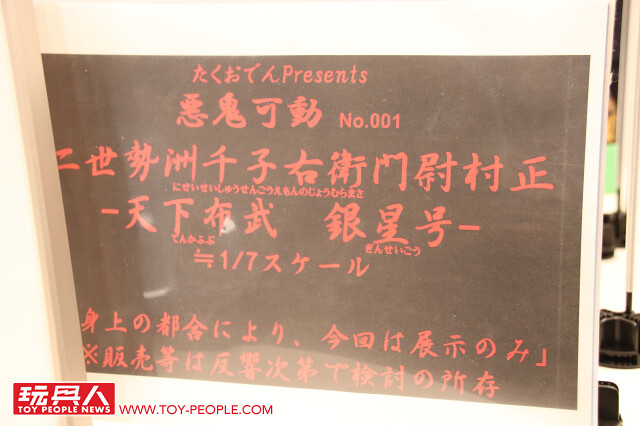 たくおでんPresents
悪鬼可動 No.001
二世勢洲千子右衛門尉村正
にせいせいしゅうせんごうえもんのじょうむらまさ
-天下布武 銀星号-
てんかふぶ ぎんせいごう
≒1/7スケール
身上の都合により、今回は展示のみ」
※販売等は反響次第で検討の所存
玩具人
TOY PEOPLE NEWS
WWW.TOY-PEOPLE.COM